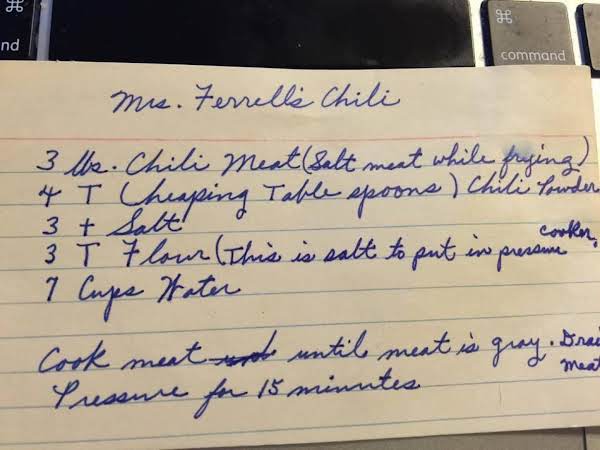 ⌘
nd
⌘
command
Mrs. Ferrell's Chili
3 lbs. Chili Meat (Salt meat while frying)
4 T (heaping Table spoons) Chili Powder
3 t Salt
3 T Flour (This is salt to put in pressure cooker.
7 Cups Water
Cook meat until meat is gray. Drai
meat
Pressure for 15 minutes